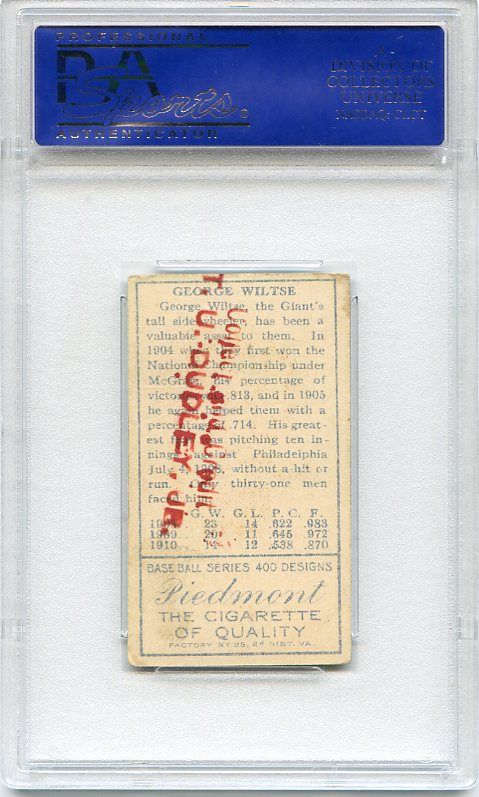 PROFESSIONAL
PSA
Sports
AUTHENTICATOR
A
DIVISION OF
COLLECTORS
UNIVERSE
NASDAQ: CLCT
GEORGE WILTSE
George Wiltse, the Giant's
tall side-wheeler, has been a
valuable asset to them. In
1904 when they first won the
National Championship under
McGraw, his percentage of
victory was .813, and in 1905
he again helped them with a
percentage of .714. His great-
est feat was pitching ten in-
nings against Philadelphia
July 4, 1908, without a hit or
run. Only thirty-one men
faced him.
G. W. G. L. P. C. F.
1908 23 14 .622 .983
1909 20 11 .645 .972
1910 14 12 .538 .870
BASE BALL SERIES 400 DESIGNS
Piedmont
THE CIGARETTE
OF QUALITY
FACTORY No 25, 2d DIST. VA.
T. U. DUDLEY, JR.